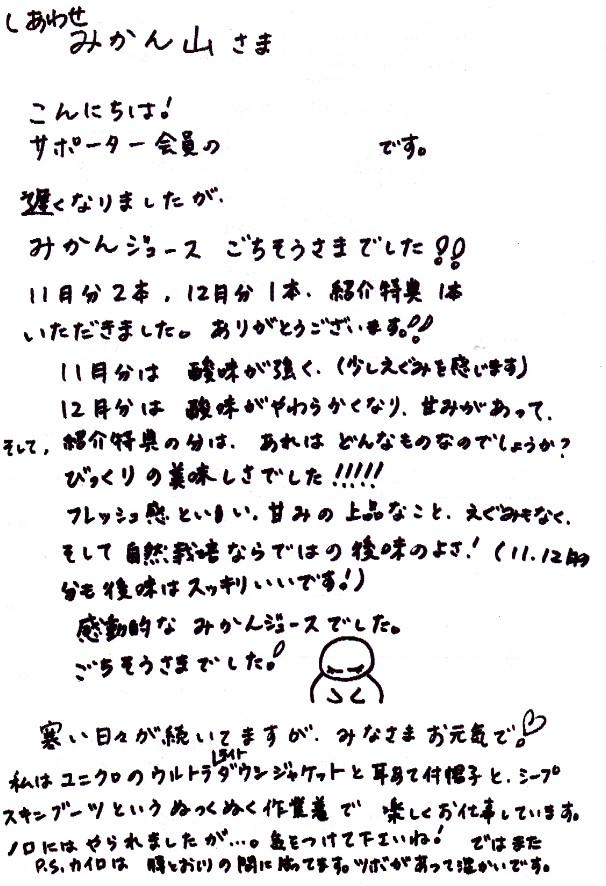 しあわせ
みかん山 さま
こんにちは!
サポーター会員の です。
遅くなりましたが、
みかんジュース ごちそうさまでした!!
11月分2本、12月分1本、紹介特典1本
いただきました。ありがとうございます。!!
11月分は 酸味が強く、(少しえぐみを感じます)
12月分は 酸味がやわらかくなり、甘みがあって、
そして、紹介特典の分は、あれは どんなものなのでしょうか?
びっくりの美味しさでした!!!!!
フレッシュ感といい、甘みの上品なこと、えぐみもなく、
そして自然栽培ならではの後味のよさ!(11、12月
分も後味はスッキリいいです!)
感動的な みかんジュースでした。
ごちそうさまでした。!
寒い日々が続いてますが、みなさま お元気で!
私はユニクロのウルトラライトダウンジャケットと耳あて付帽子と、シープ
スキンブーツというぬっくぬく作業着で 楽しくお仕事しています。
ノロにはやられましたが…。気をつけて下さいね! ではまた
P.S.カイロは 腰とおしりの間に貼ってます。ツボがあって温かいです。